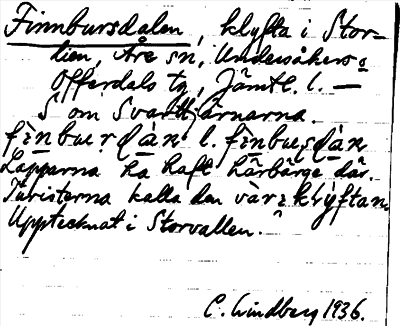 Finnbursdalen, klyfta i Stor-
lien, Åre sn, Undersåkers o
Offerdals tg, Jämtl. l. —
S om Svarttjärnarna.
finburdàn l. finbusdàn
Lapparna ha haft härbärge där.
Turisterna kalla den väreklýftan.
Upptecknat i Storvallen.
C. Lindberg 1936.